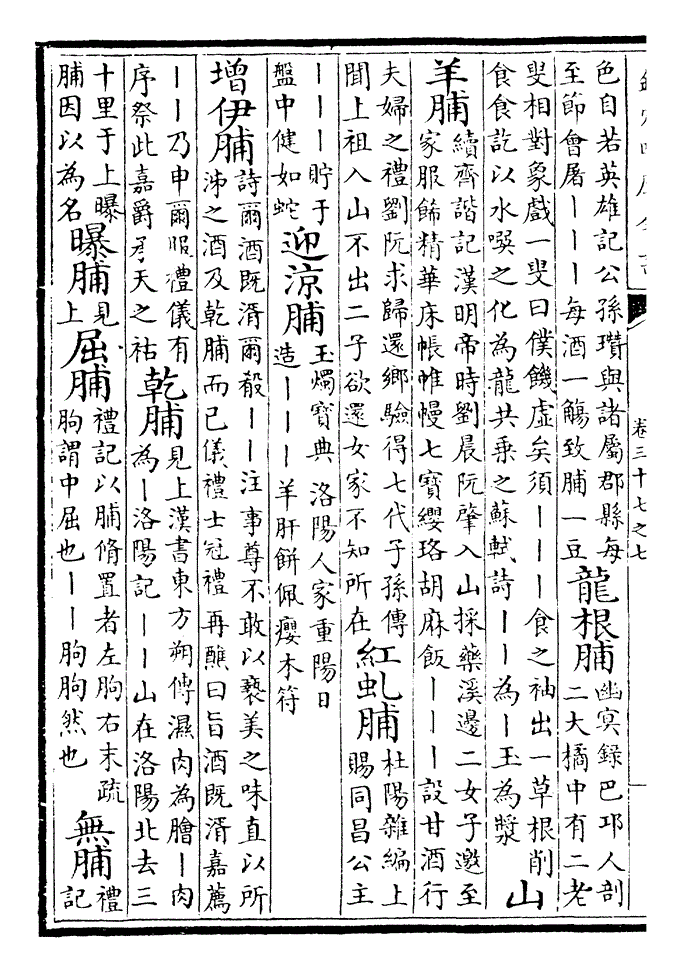 卷三十七之七
色自若英雄記公孫瓚與諸屬郡縣每
至節會屠丨丨丨每酒一觴致脯一豆
龍根脯
幽冥錄巴邛人剖
二大橘中有二老
叟相對象戲一叟曰僕饑虛矣須丨丨丨食之袖出一草根削
食食訖以水噀之化為龍共乘之蘇軾詩丨丨為丨玉為漿
山
羊脯
續齊諧記漢明帝時劉晨阮肇入山採藥溪邊二女子邀至
家服飾精華床帳帷幔七寶纓珞胡麻飯丨丨丨設甘酒行
夫婦之禮劉阮求歸還鄉驗得七代子孫傳
聞上祖入山不出二子欲還女家不知所在
紅虬脯
杜陽雜編上
賜同昌公主
丨丨丨貯于
盤中健如蛇
迎涼脯
玉燭寶典洛陽人家重陽日
造丨丨丨羊肝餅佩癭木符
增伊脯
詩爾酒既湑爾殽丨丨注事尊不敢以褻美之味直以所
沛之酒及乾脯而已儀禮士冠禮再醮曰旨酒既湑嘉薦
丨丨乃申爾服禮儀有
序祭此嘉爵承天之祜
乾脯
見上漢書東方朔傳濕肉為膾丨肉
為丨洛陽記丨丨山在洛陽北去三
十里于上曝
脯因以為名
曝脯
見
上
屈脯
禮記以脯脩置者左朐右末疏
朐謂中屈也丨丨朐朐然也
無脯
禮
記